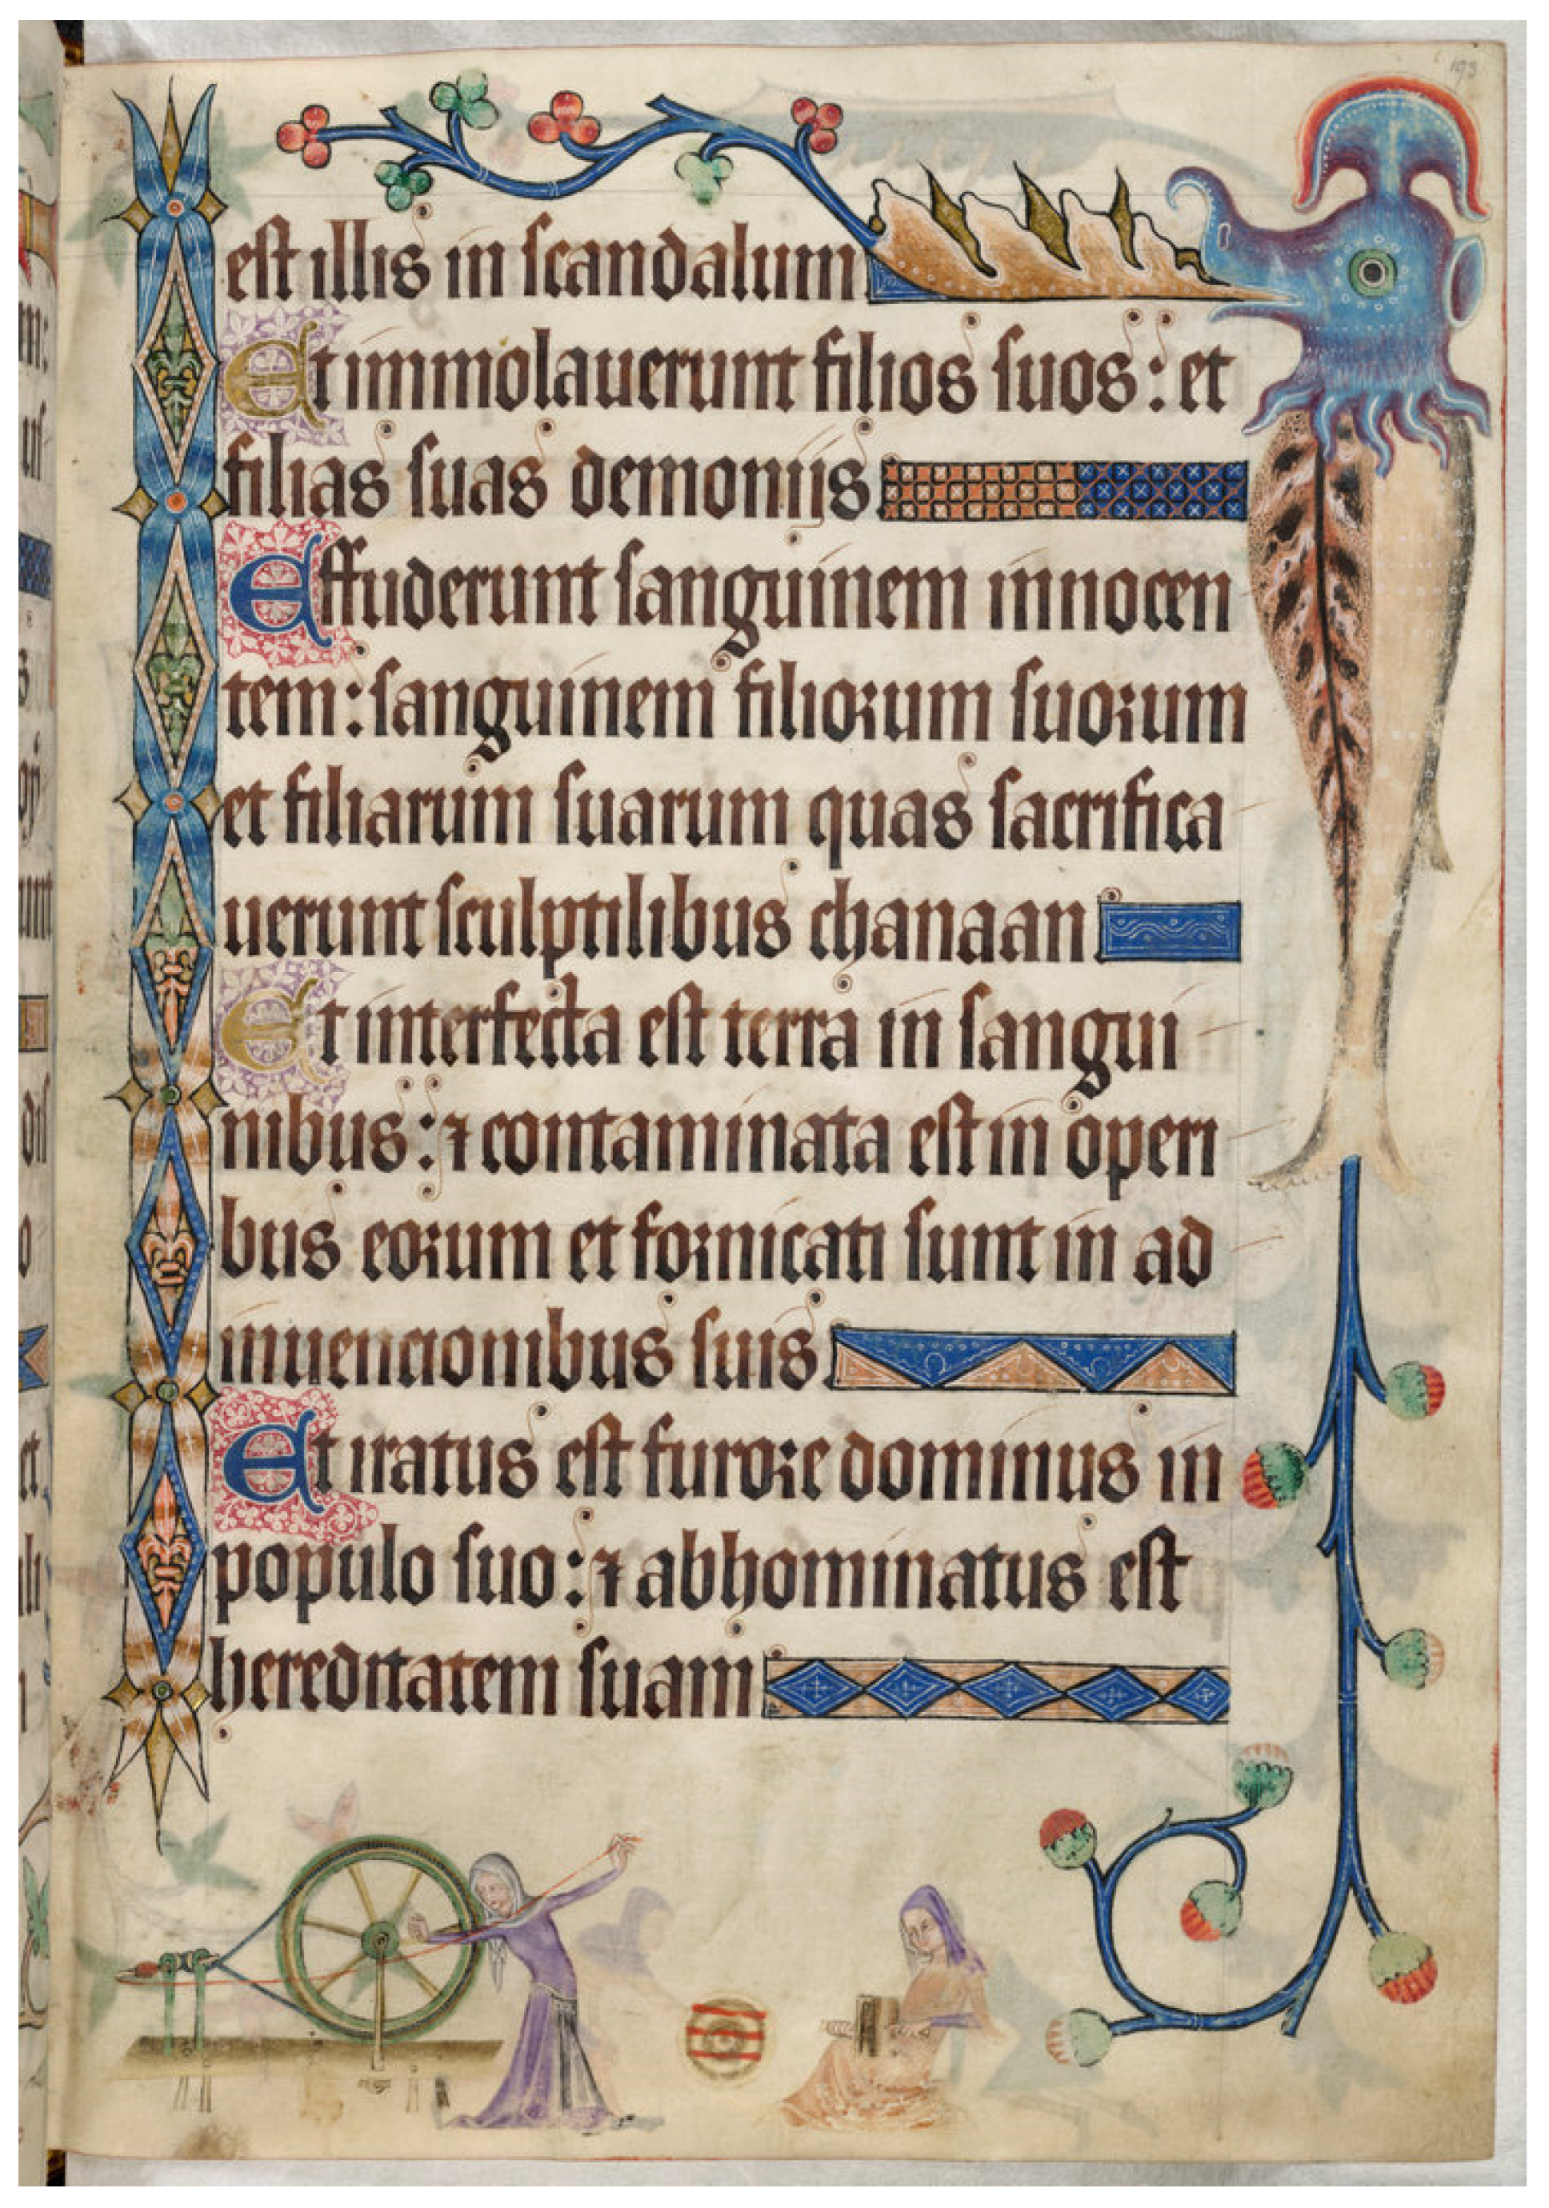 193
est illis in scandalum.
Et immolauerunt filios suos: et
filias suas demoniis.
Effuderunt sanguinem innocen
tem: sanguinem filiorum suorum
et filiarum suarum quas sacrifica
uerunt sculptilibus chanaan.
Et interfecta est terra in sangui
nibus: ⁊ contaminata est in operi
bus eorum et fornicati sunt in ad
inuencionibus suis.
Et iratus est furore dominus in
populo suo: ⁊ abhominatus est
hereditatem suam.